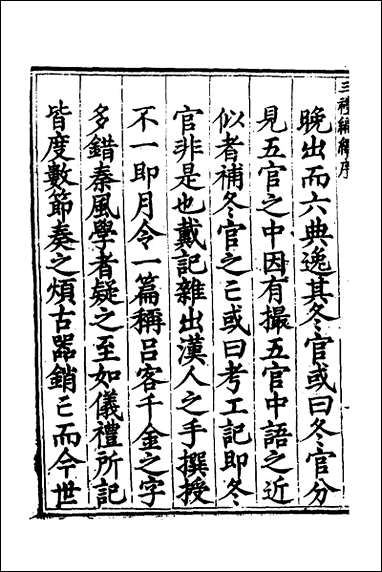 三禮編繹序
晚出而六典逸其冬官或曰冬官分
見五官之中因有撮五官中語之近
似者補冬官之亡或曰考工記即冬
官非是也戴記雜出漢人之手撰授
不一即月令一篇稱呂客千金之字
多錯秦風學者疑之至如儀禮所記
皆度數節奏之煩古器銷亡而今世